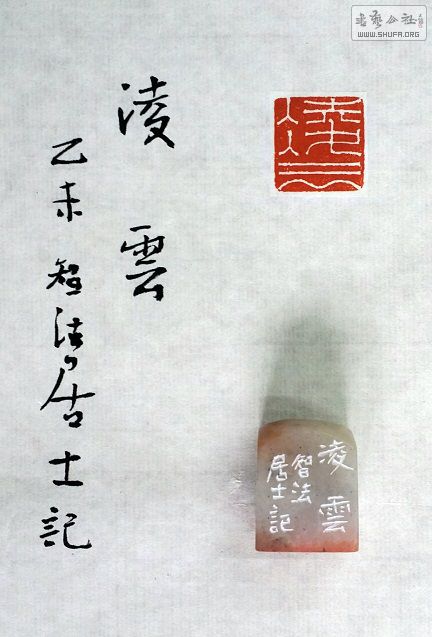 凌雲
乙未 智法居士記
凌雲
凌雲
智法
居士記
書藝公社
WWW.SHUFA.ORG